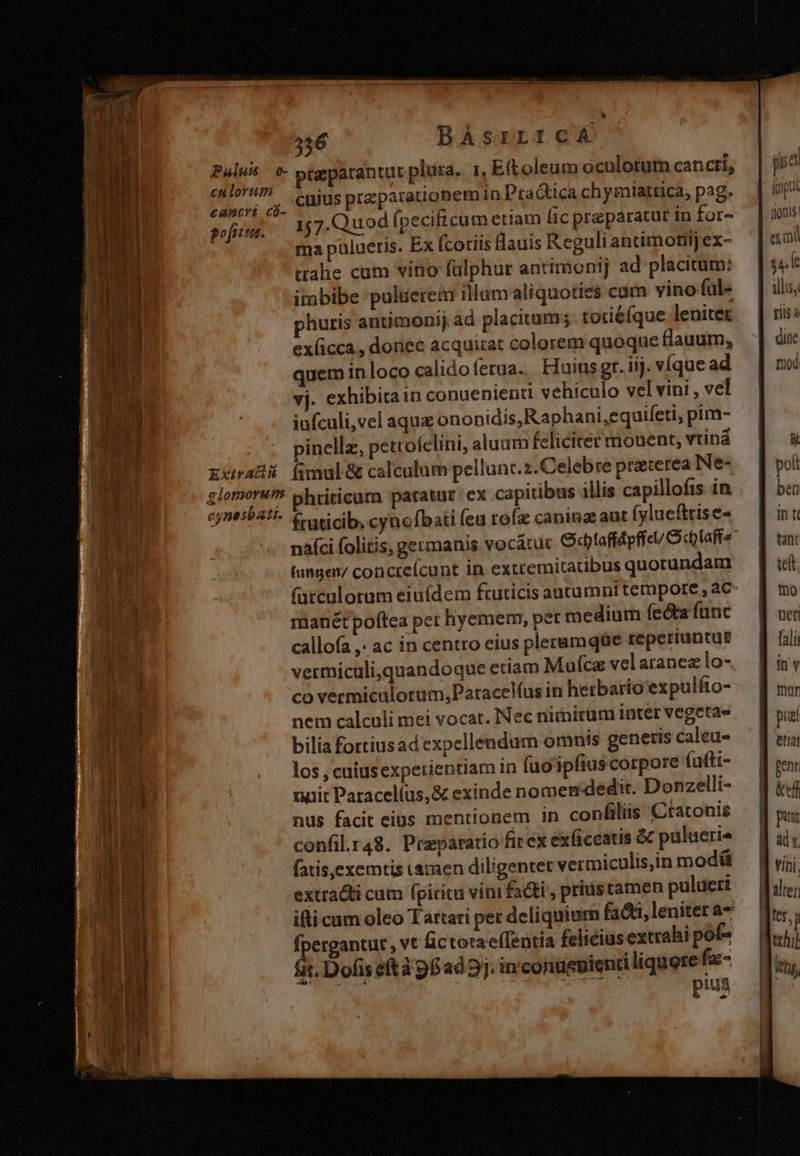 336 BASILICA
Puluis & præparantur plura. 1. Est oleum oculorum cancri,
culorum cuius præparationem in Practica chymiatrica, pag.
cancri cō- 157. Quod specificum etiam sic præparatur in for-
positus. ma pulueris. Ex scoriis flauis Reguli antimonij ex-
trahe cum vino sulphur antimonij ad placitum:
imbibe puluerem illum aliquoties cum vino sul-
phuris antimonij ad placitum; totiésque leniter
exsicca, donec acquirat colorem quoque flauum,
quem in loco calido serua. Huius gr. iij. vsque ad
vj. exhibita in conuenienti vehiculo vel vini, vel
iusculi, vel aquæ ononidis, Raphani, equiseti, pim-
pinellæ, petroselini, aluum feliciter mouent, vrinā
Extractū simul & calculum pellunt. 2. Celebre præterea Ne-
glomorum phriticum paratur ex capitibus illis capillosis in
cynosbati. fruticib. cynosbati seu rosæ caninæ aut syluestris e-
nasci solitis, germanis vocātur Schlaffäpffel/ Schlaffe
kungen/ concrescunt in extremitatibus quorundam
surculorum eiusdem fruticis autumni tempore, ac
manēt postea per hyemem, per medium secta sunt
callosa, ac in centro eius plerumque reperiuntur
vermiculi, quandoque etiam Muscæ vel araneæ lo-
co vermiculorum, Paracelsus in herbario expulsio-
nem calculi mei vocat. Nec nimirum inter vegeta-
bilia fortius ad expellendum omnis generis calcu-
los, cuius experientiam in suo ipsius corpore susti-
nuit Paracelsus, & exinde nomen dedit. Donzelli-
nus facit eius mentionem in consiliis Cratonis
consil. 148. Præparatio fit ex exsiccatis & pulueri-
satis, exemtis tamen diligenter vermiculis, in modū
extracti cum spiritu vini facti, prius tamen pulueri
isti cum oleo Tartari per deliquium facti, leniter a-
spergantur, vt sic tota essentia felicius extrahi pos-
sit. Dosis est à ℈ß ad ℈j. in conuenienti liquore sæ-
pius